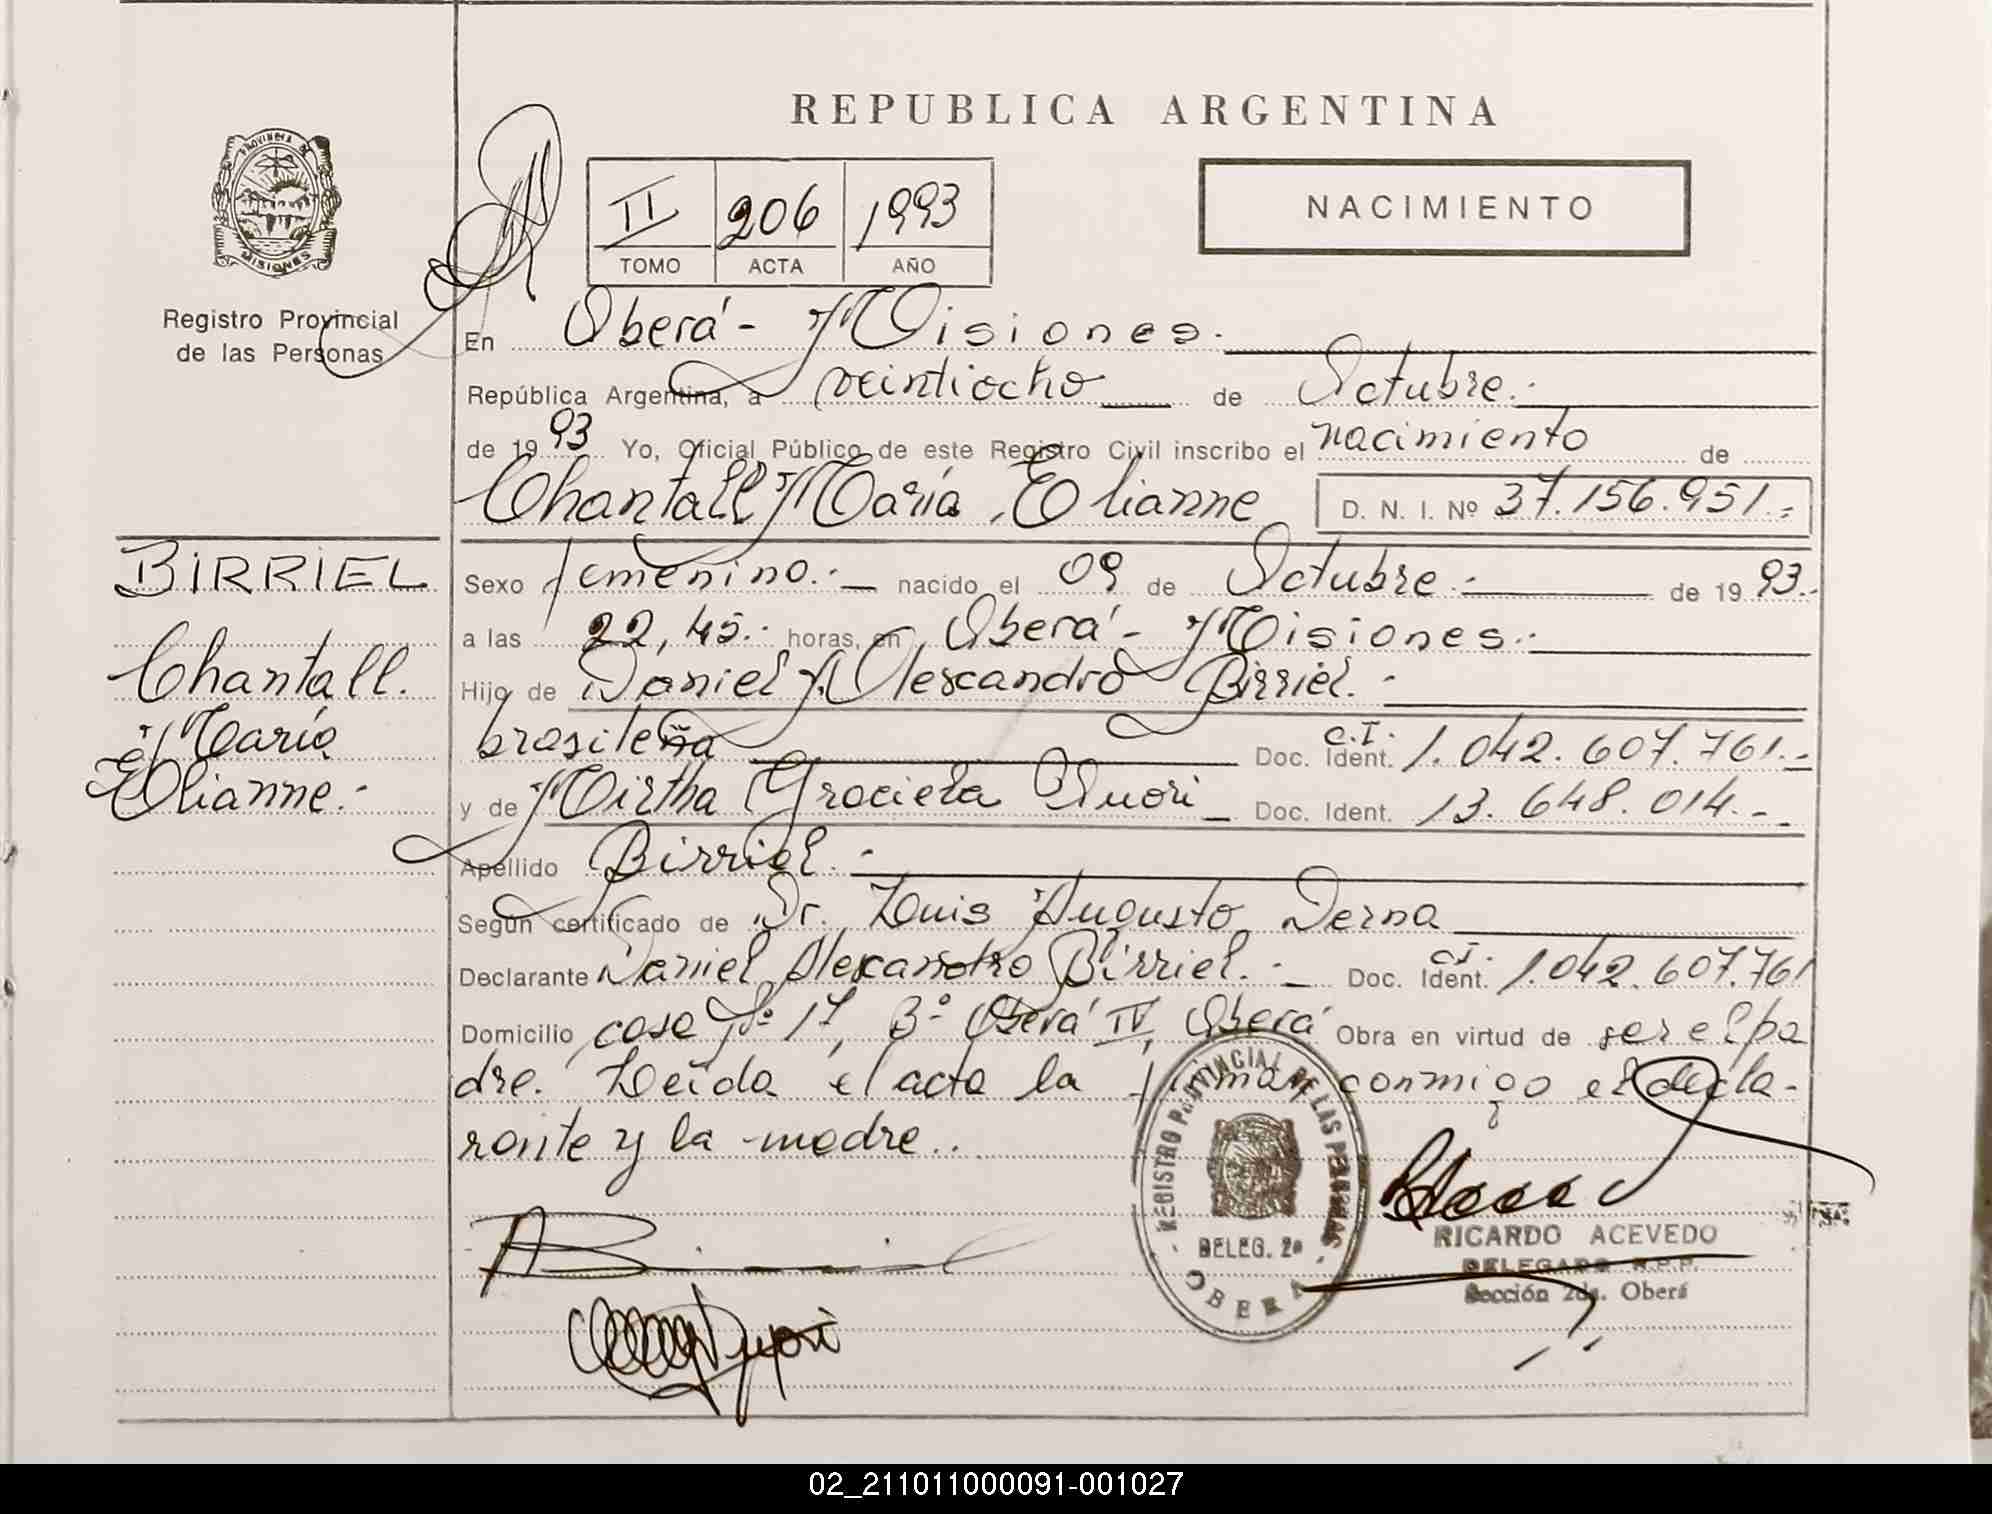 REPUBLICA ARGENTINA
PROVINCIA DE
MISIONES
Registro Provincial
de las Personas
II 206 1993
TOMO ACTA AÑO
NACIMIENTO
En Oberá - Misiones.
República Argentina, a veintiocho de Octubre.
de 1993 Yo, Oficial Público de este Registro Civil inscribo el nacimiento de
Chantall María Elianne D. N. I. Nº 37.156.951.-
BIRRIEL
Chantall.
María
Elianne.-
Sexo femenino.- nacido el 09 de Octubre.- de 1993.-
a las 22,45.- horas, en Oberá - Misiones.-
Hijo de Daniel Alexandro Birriel.-
brasileña C.I. Doc. Ident. 1.042.607.761.-
y de Mirtha Graciela Quori Doc. Ident. 13.648.014.-
Apellido Birriel.-
Según certificado de Dr. Luis Augusto Derna
Declarante Daniel Alexandro Birriel.- C.I. Doc. Ident. 1.042.607.761
Domicilio casa Nº 17, Bº Oberá IV, Oberá Obra en virtud de ser el pa
dre. Leída el acta la firman conmigo el decla-
rante y la madre..
REGISTRO PROVINCIAL DE LAS PERSONAS
DELEG. 2ª
OBERA
RICARDO ACEVEDO
DELEGADO R.P.P.
Sección 2da. Oberá
02_211011000091-001027